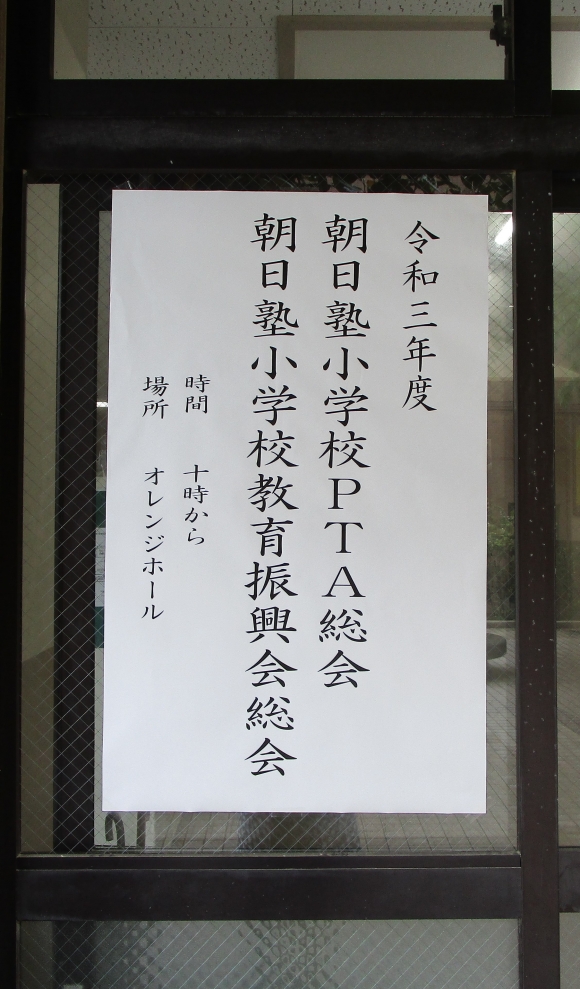 令和三年度
朝日塾小学校PTA総会
朝日塾小学校教育振興会総会
時間　十時から
場所　オレンジホール